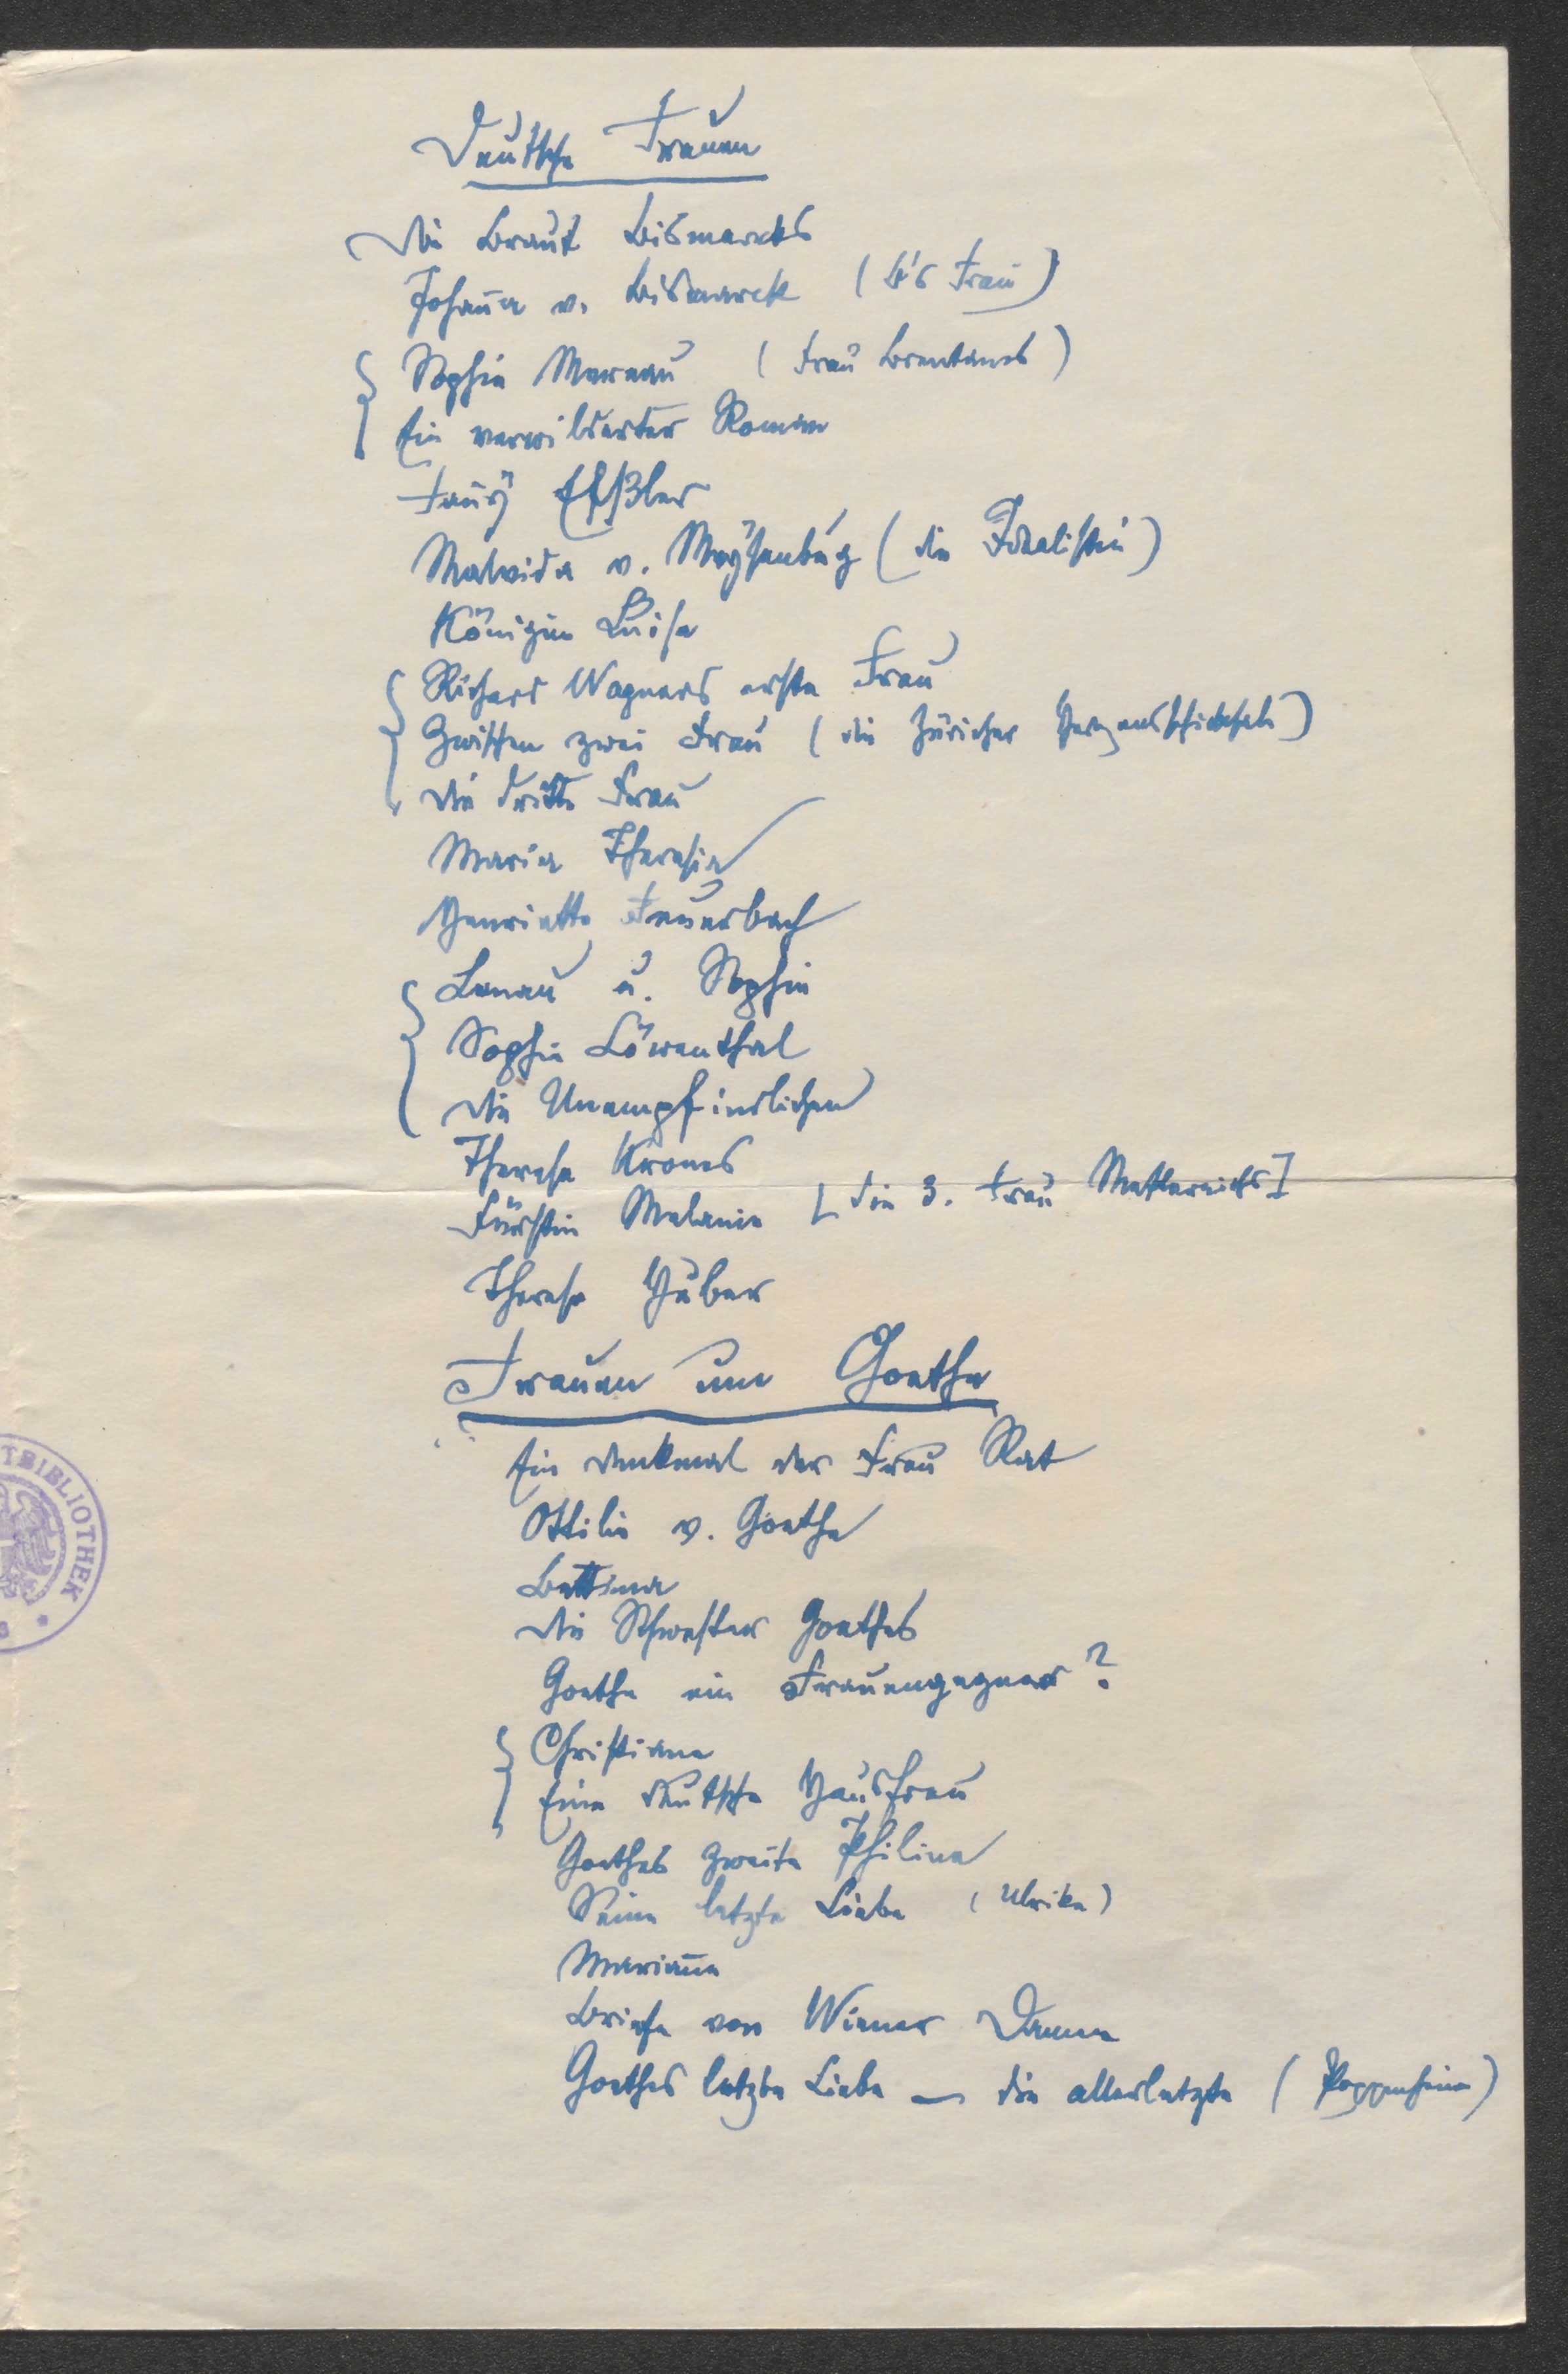 Deutsche Frauen
Die Braut Bismarcks
Johana v. Bismarck (B's Frau)
Sophie Mereau (Frau Brentanos)
Ein verwilderter Roman
Fany Elßler
Malvida v. Meysenbug (die Idealistin)
Königin Luise
Richard Wagners erste Frau
Zwischen zwei Frau (die Züricher Herzensschicksale)
Die dritte Frau
Maria Theresia
Henriette Feuerbach
Lenau u. Sophie
Sophie Löwenthal
Die Unempfindlichen
Therese Krones
Fürstin Melanie [die 3. Frau Metternichs]
Therese Huber
Frauen um Goethe
Ein Denkmal der Frau Rat
Ottilie v. Goethe
Bettina
Die Schwester Goethes
Goethe ein Frauengegner?
Christiane
Eine deutsche Hausfrau
Goethes zweite Philine
Seine letzte Liebe (Ulrike)
Mariane
Briefe von Wiener Damen
Goethes letzte Liebe — die allerletzte (Pappenheim)
TBIBLIOTHEK